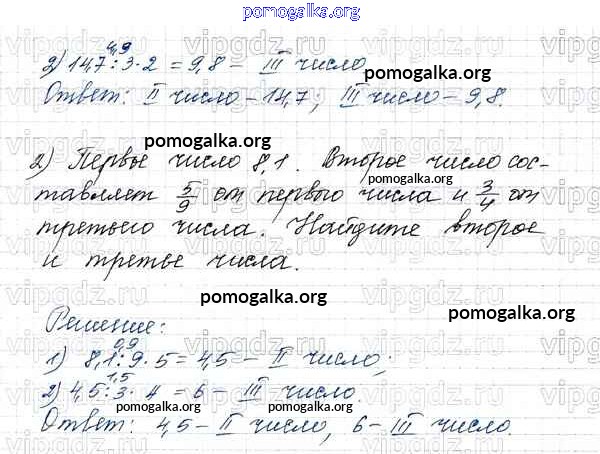 pomogalka.org
4,9
2) 14,7 : 3 · 2 = 9,8 – III число
pomogalka.org
Ответ: II число – 14,7; III число – 9,8.
pomogalka.org
2) Первое число 8,1. Второе число сос-
pomogalka.org
тавляет 5/9 от первого числа и 3/4 от
третьего числа. Найдите второе
и третье числа.
pomogalka.org
Решение:
0,9
1) 8,1 : 9 · 5 = 4,5 – II число;
pomogalka.org
1,5
2) 4,5 : 3 · 4 = 6 – III число.
pomogalka.org
Ответ: 4,5 – II число, 6 – III число.
pomogalka.org
vipgdz.ru
vipgdz.ru
vipgdz.ru
vipgdz.ru